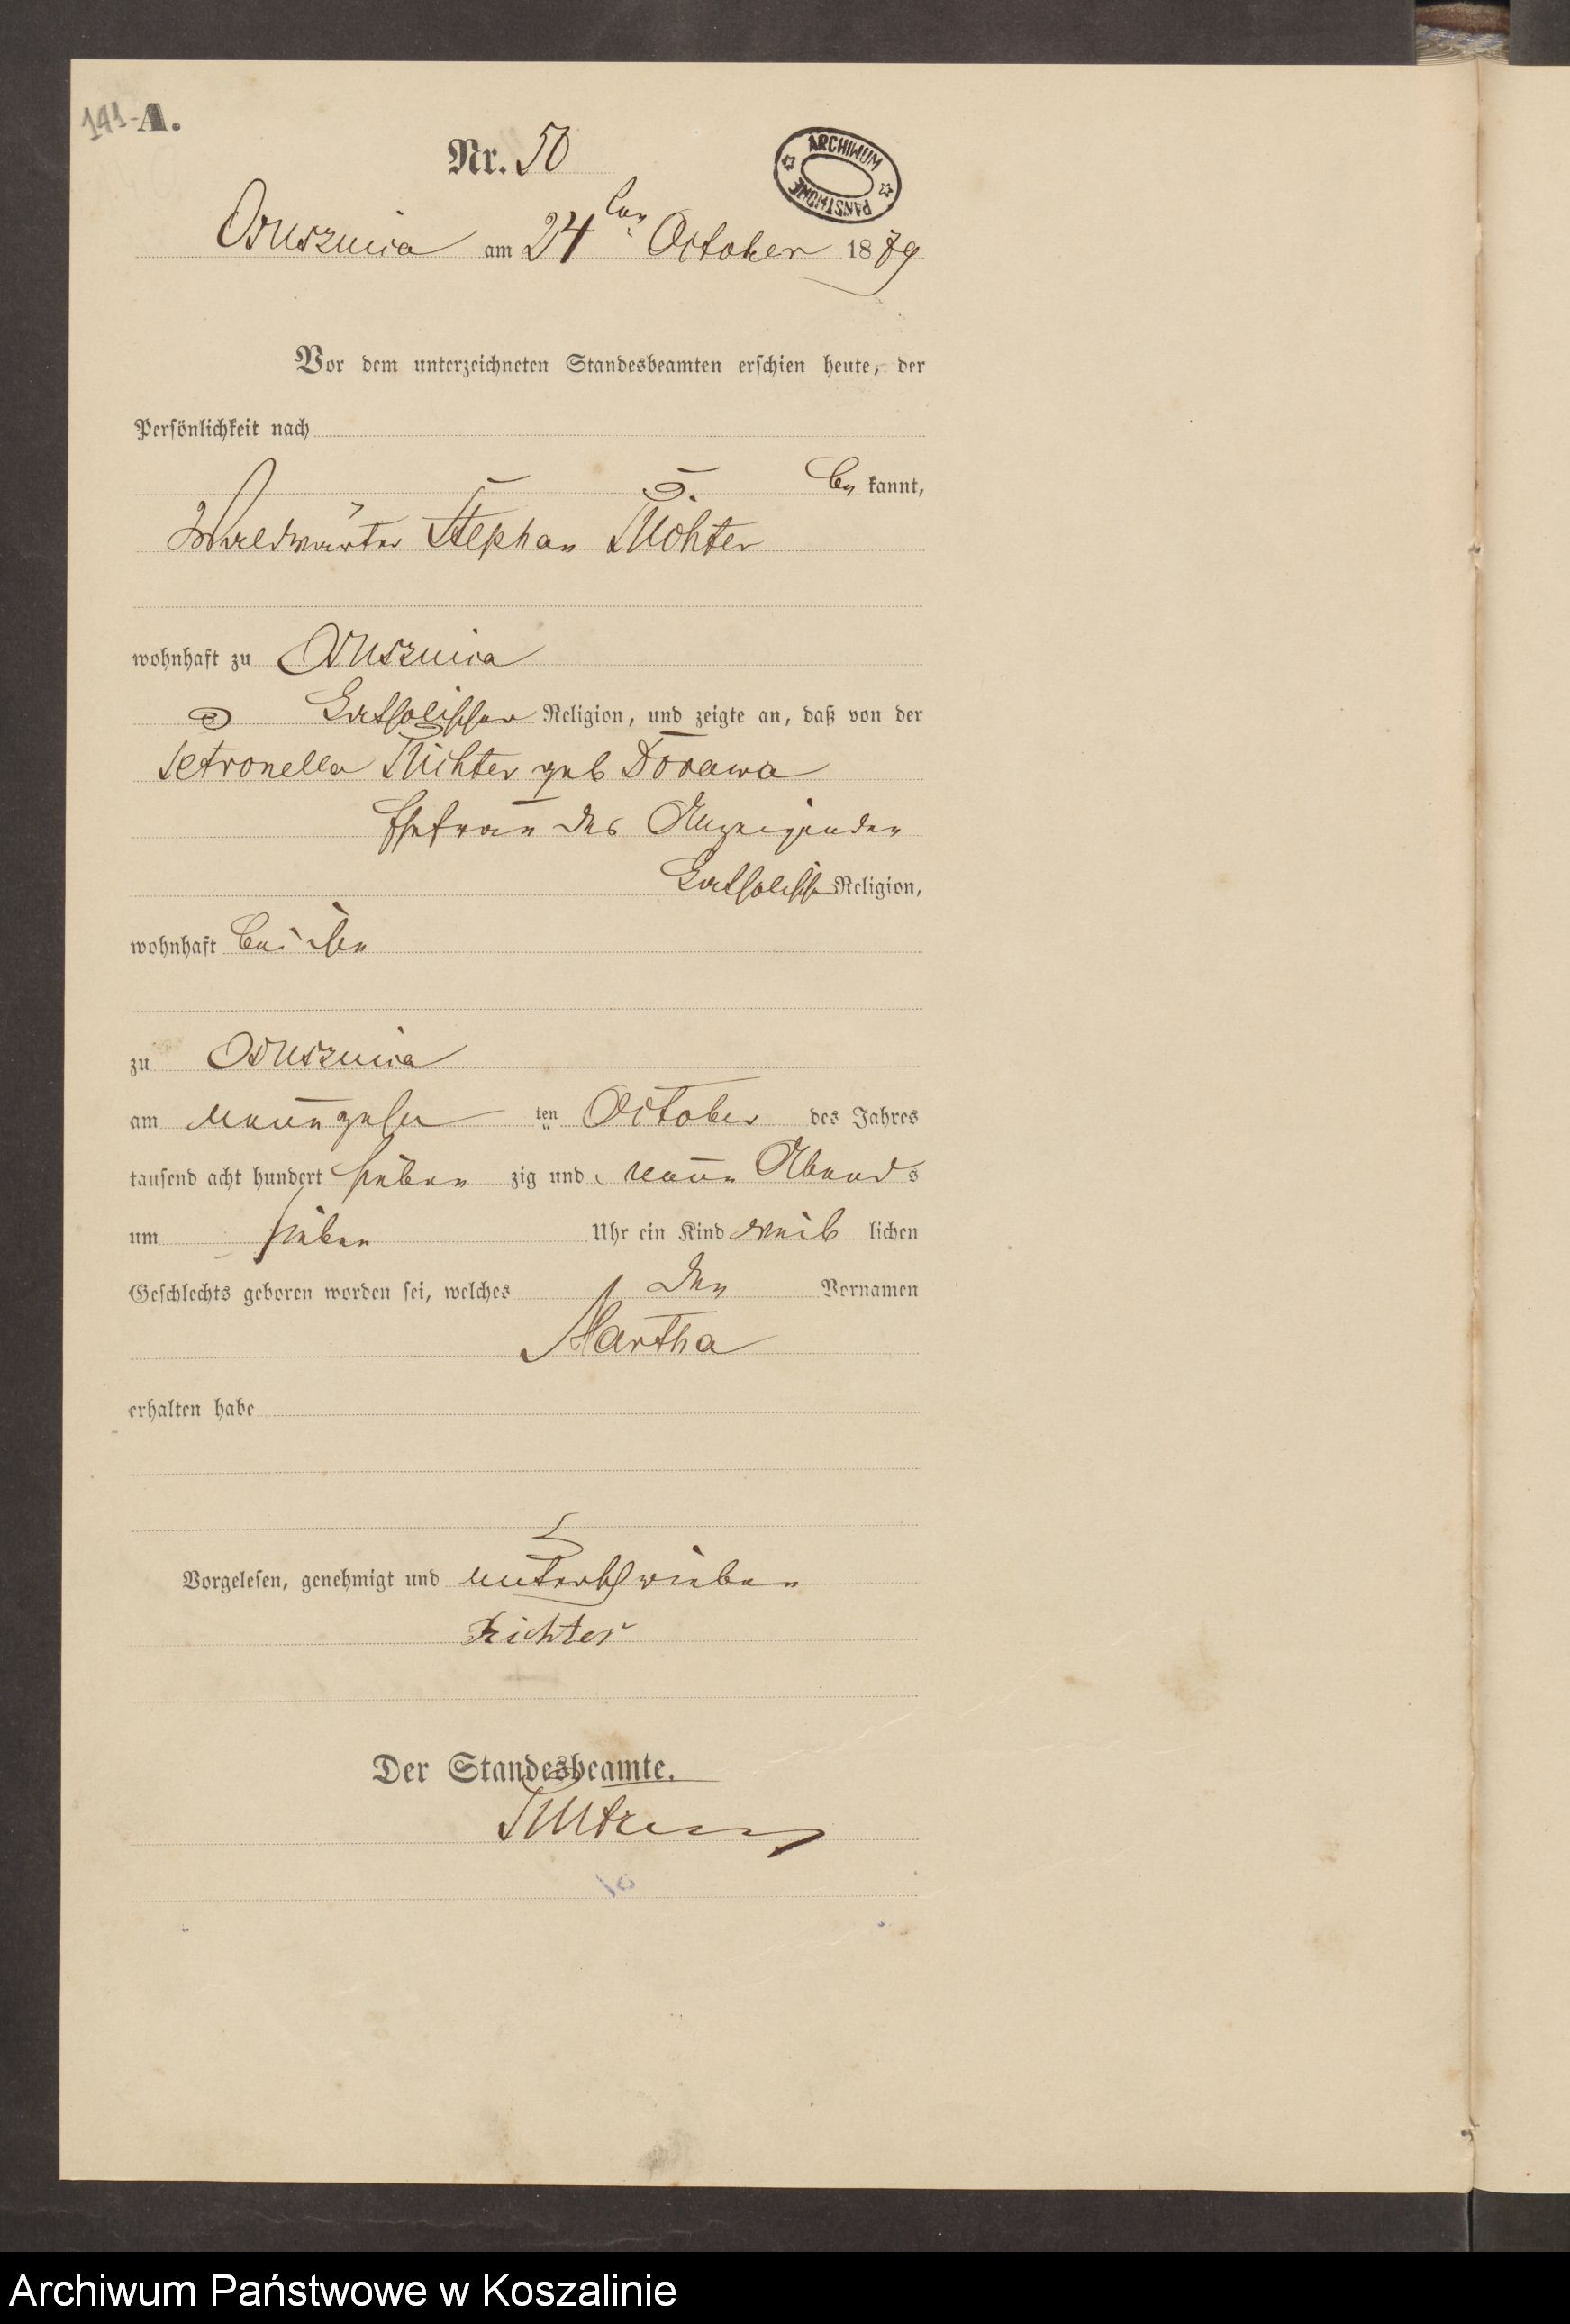 141-A.
Nr. 50
ARCHIWUM PAŃSTWOWE
Ossusznica am 24ten October 1879
Vor dem unterzeichneten Standesbeamten erschien heute, der
Persönlichkeit nach
be kannt,
Waldwärter Stephan Richter
wohnhaft zu Ossusznica
katholischer Religion, und zeigte an, daß von der
Petronella Richter geb Dorawa
Ehefrau des Anzeigenden
katholischer Religion,
wohnhaft bei ihm
zu Ossusznica
am neunzehn ten October des Jahres
tausend acht hundert sieben zig und neun Abends
um sieben Uhr ein Kind weib lichen
Geschlechts geboren worden sei, welches den Vornamen
Martha
erhalten habe
Vorgelesen, genehmigt und unterschrieben
Richter
Der Standesbeamte.
Archiwum Państwowe w Koszalinie